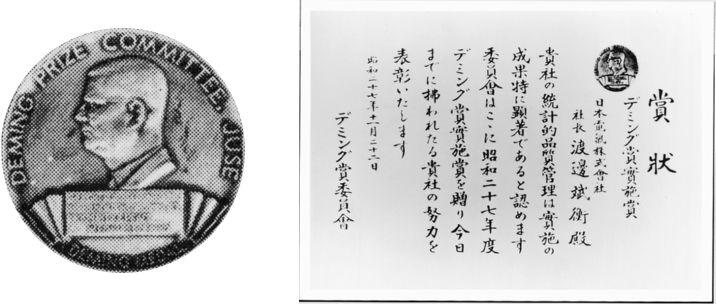 DEMING PRIZE COMMITTEE, JUSE
賞狀
デミング賞實施賞
日本電氣株式會社
社長 渡邊斌衡殿
貴社の統計的品質管理は實施の
成果特に顕著であると認めます
委員會はここに昭和二十七年度
デミング賞實施賞を贈り今日
までに拂われたる貴社の努力を
表彰いたします
昭和二十七年十一月二十二日
デミング賞委員會